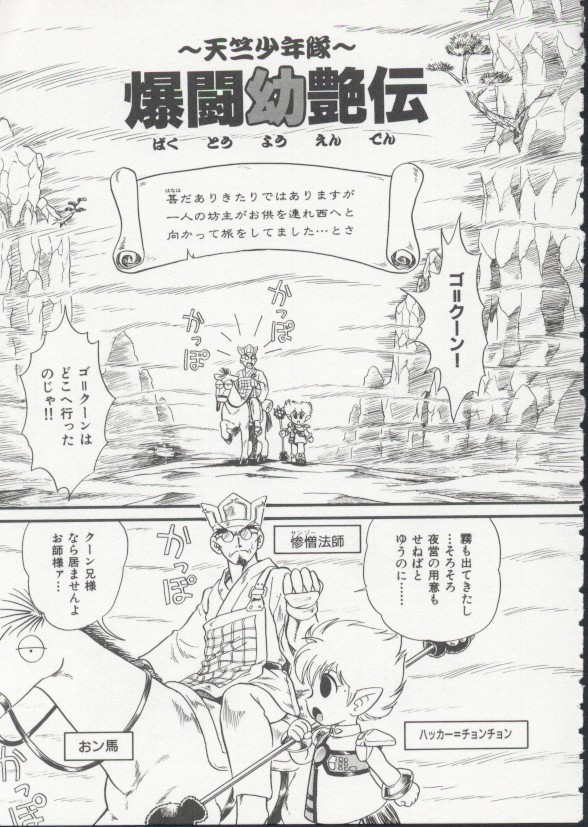 ～天竺少年隊～
爆闘幼艶伝
ばくとうようえんでん
甚だありきたりではありますが
はなは
一人の坊主がお供を連れ西へと
向かって旅をしてました…とさ
ゴ＝クーン！
かっぽ
かっぽ
ゴ＝クーンは
どこへ行った
のじゃ!!
霧も出てきたし
…そろそろ
夜営の用意も
せねばと
ゆうのに……
サンゾー
惨憎法師
かっぽ
クーン兄様
なら居ませんよ
お師様ァ…
ハッカー＝チョンチョン
おン馬
かっぽ